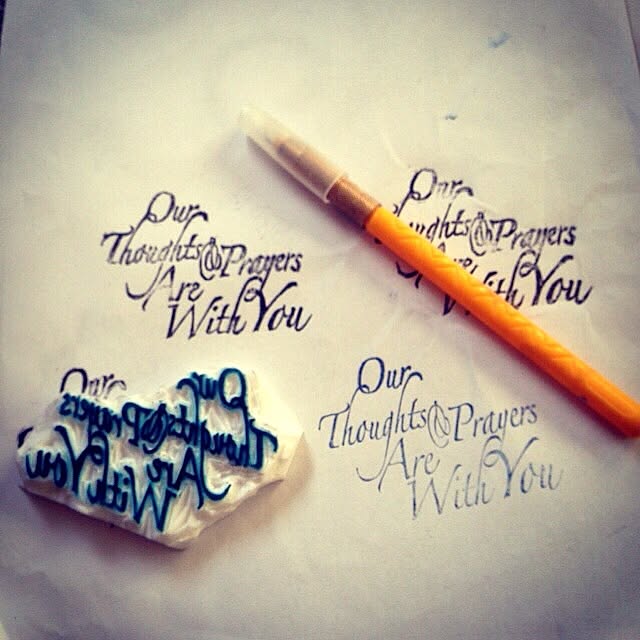 Our
Thoughts & Prayers
Are
With You
Our
Thoughts & Prayers
Are
With You
Our
Our
Thoughts & Prayers
Are
With You
Our
Thoughts & Prayers
Are
With You